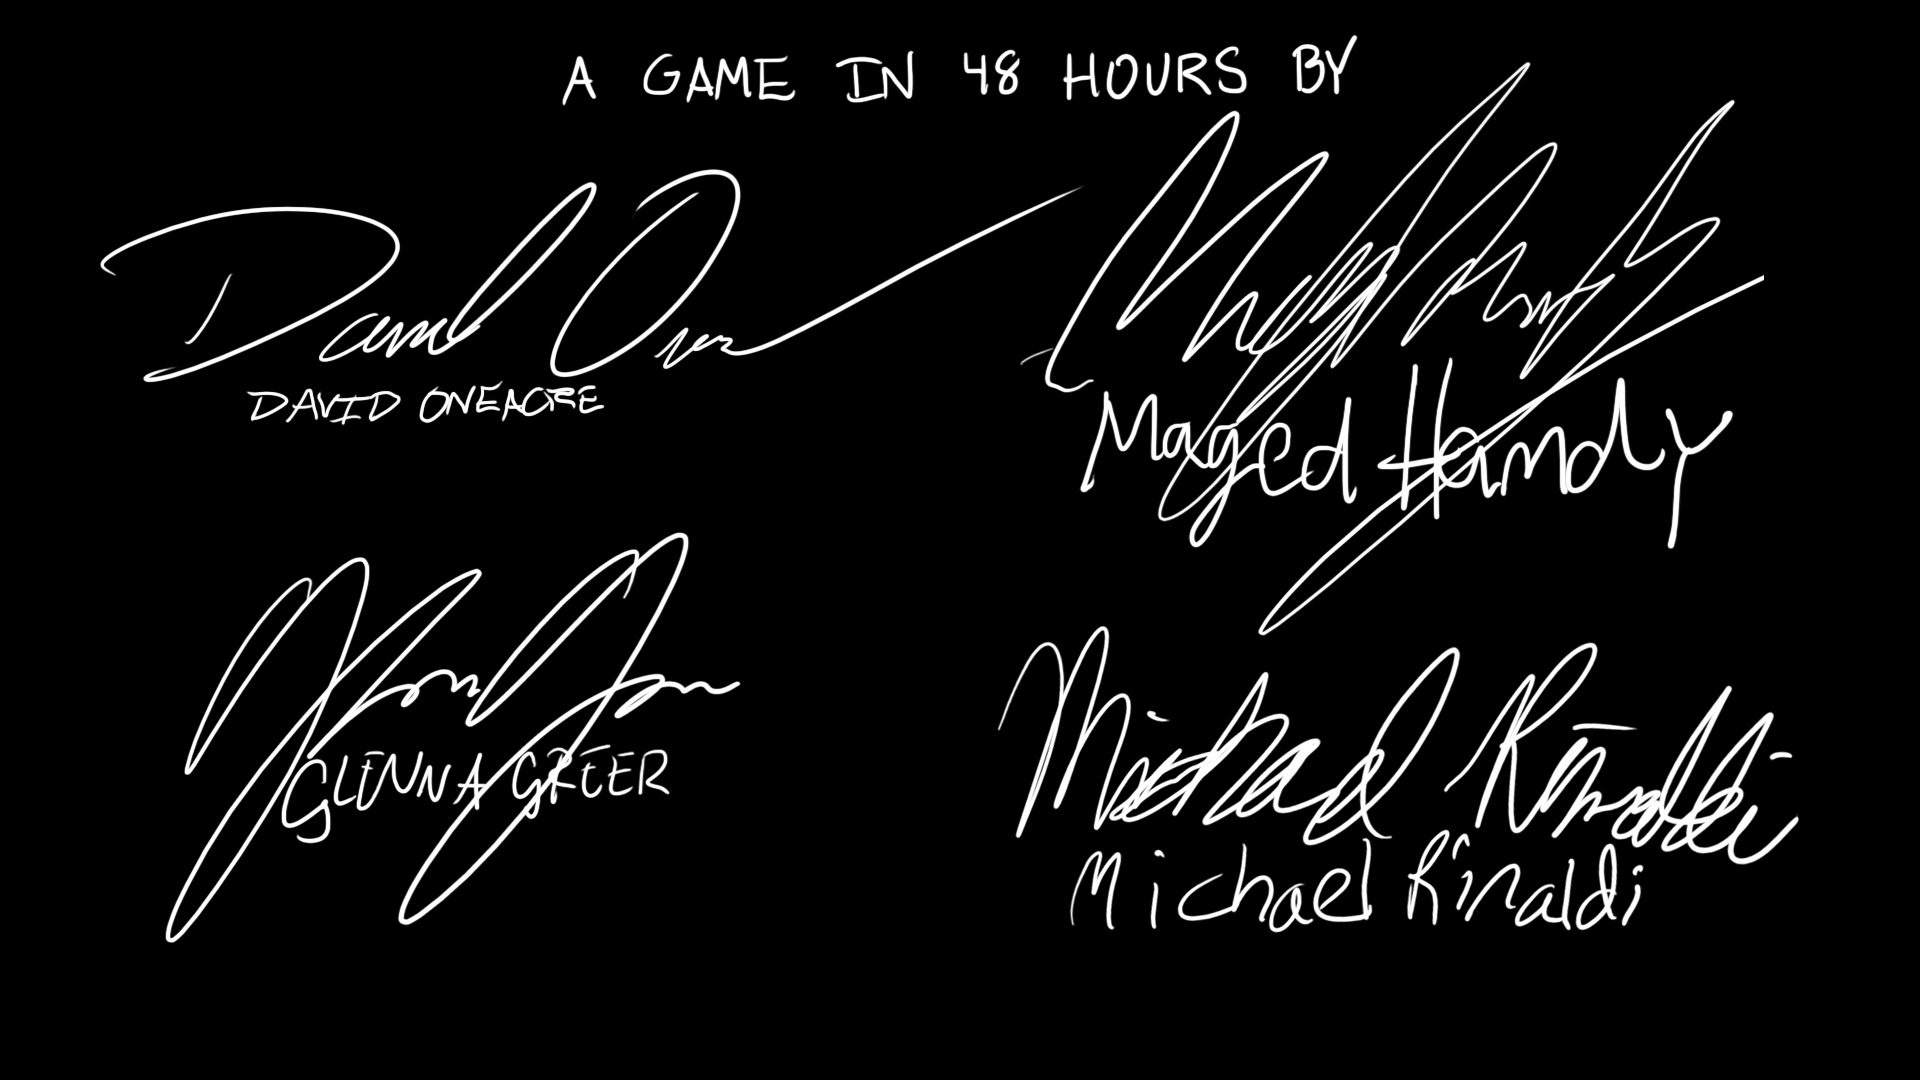 A GAME IN 48 HOURS BY
DAVID ONEACRE
Maged Hamdy
GLENNA GREER
Michael Rinaldi
Michael Rinaldi